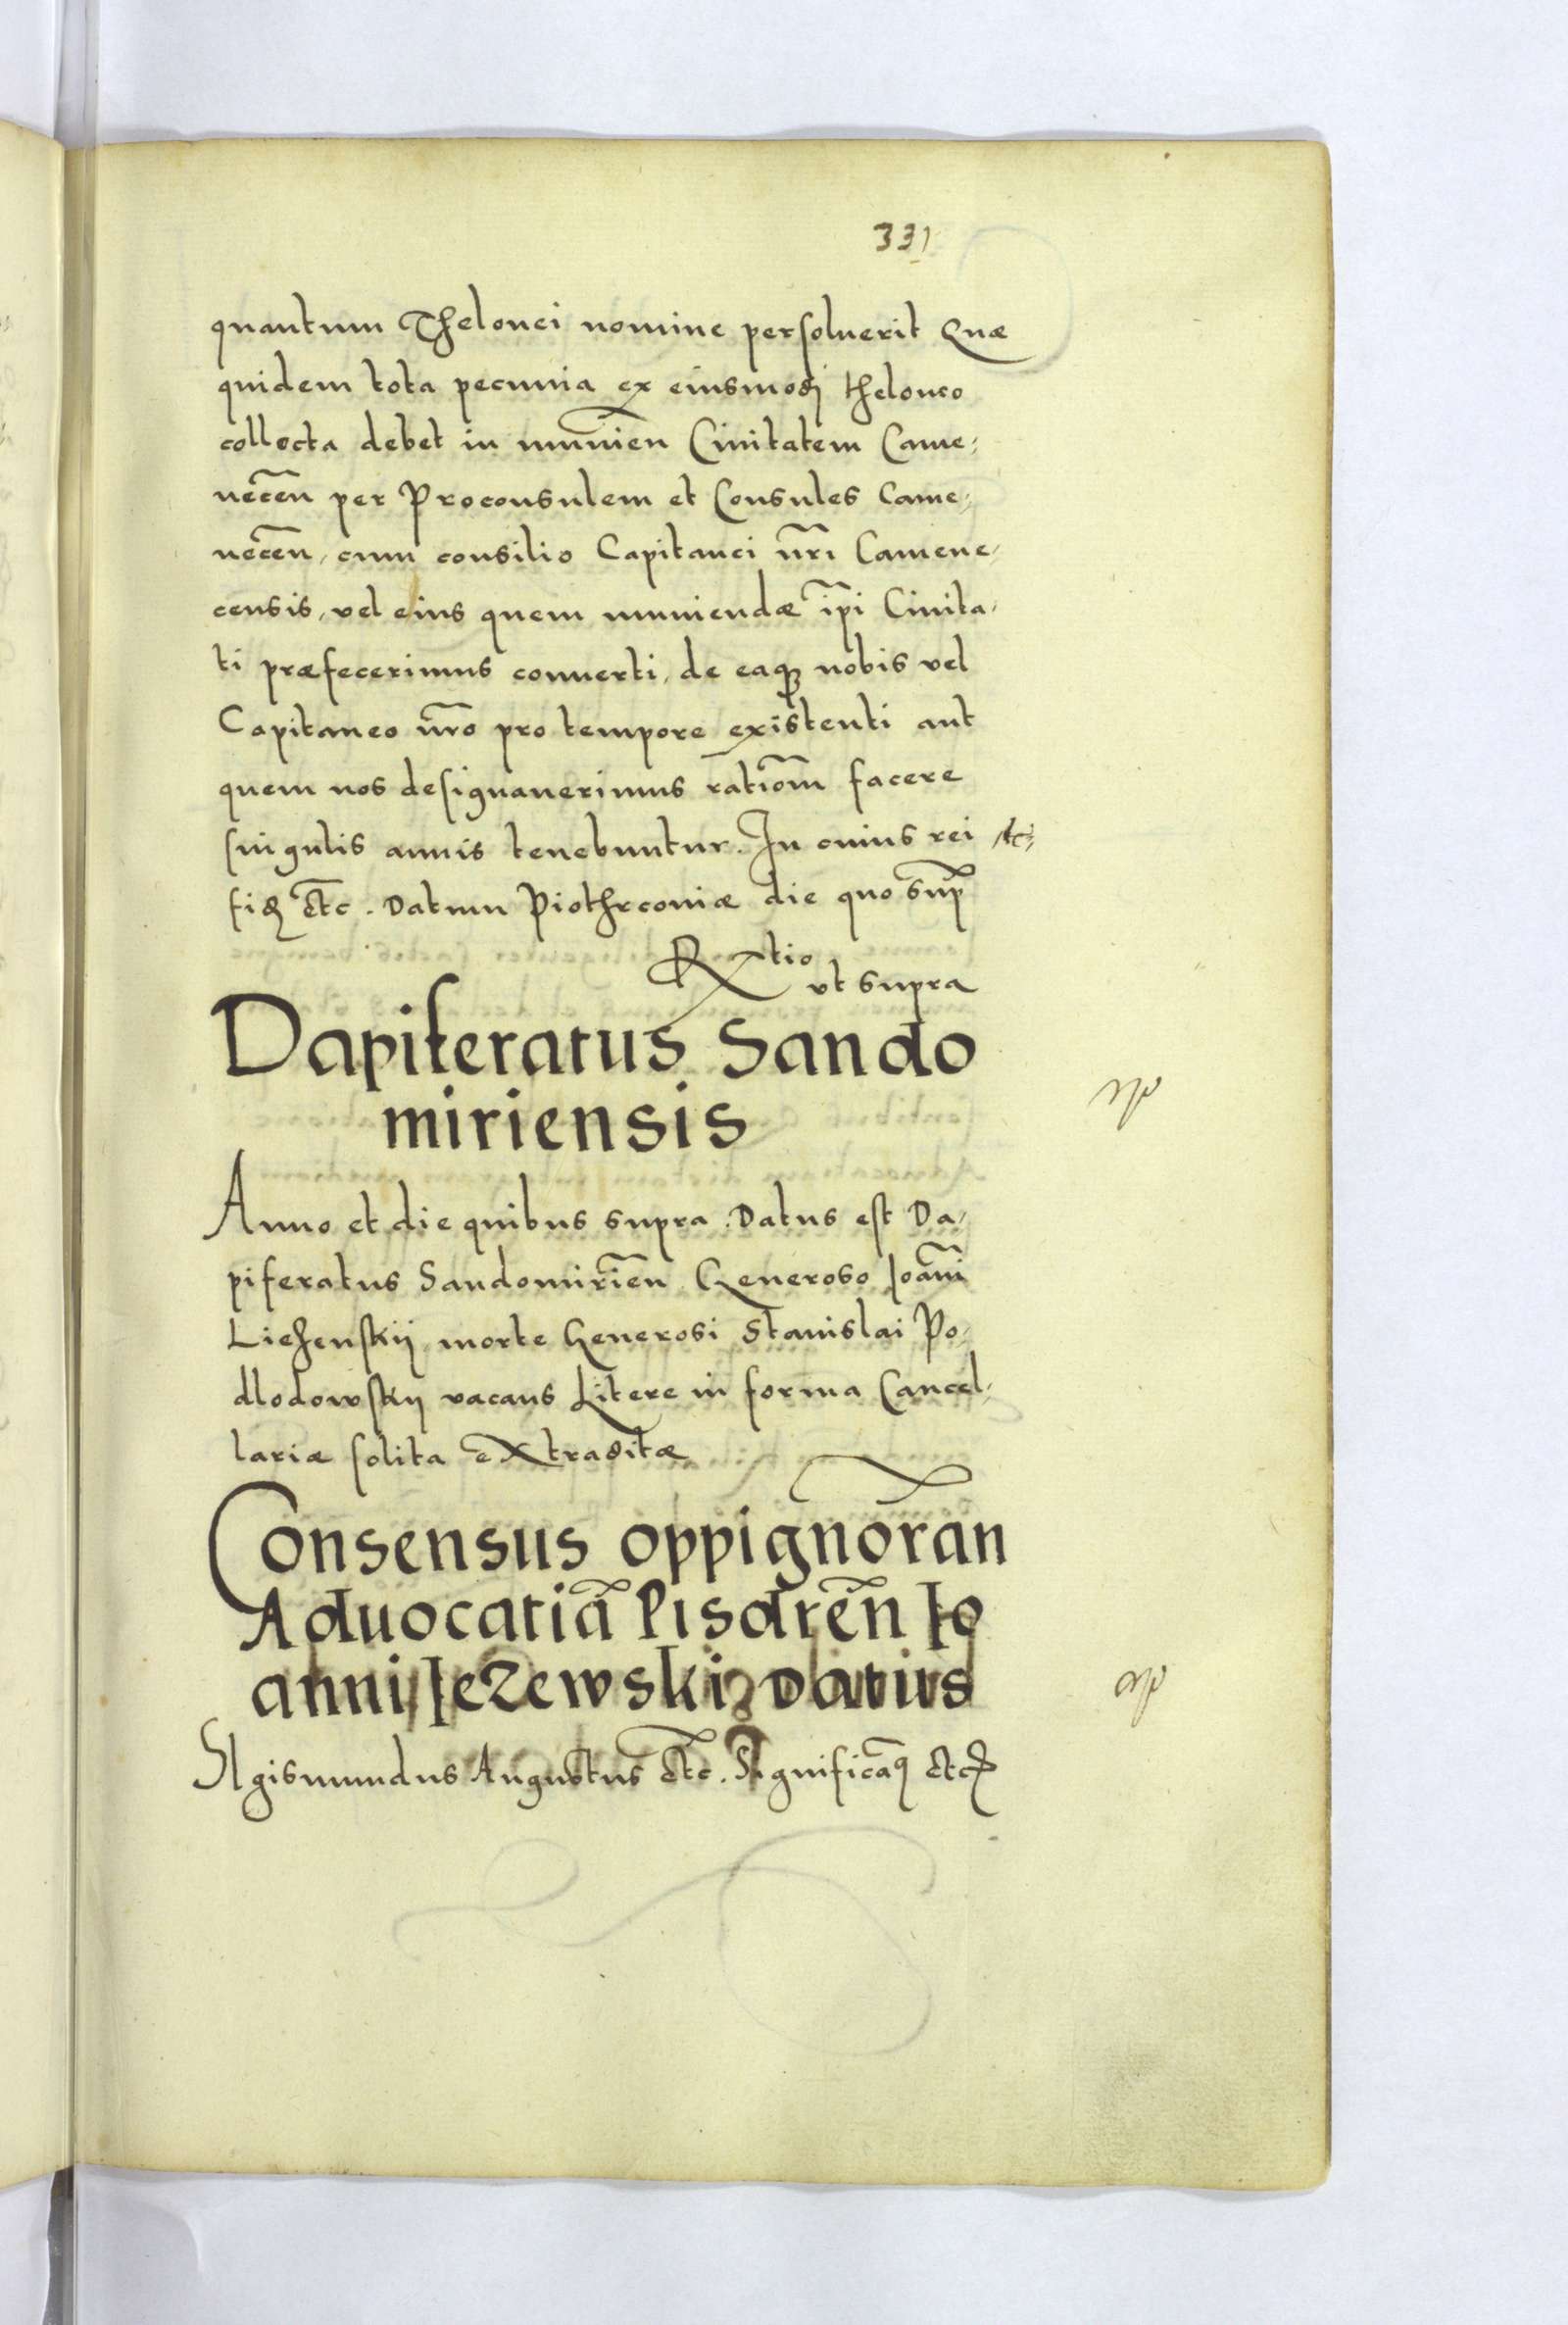 331
quantum Thelonei nomine persoluerit Quæ
quidem tota pecunia ex eiusmodi theloneo
collecta debet in munien̄ Ciuitatem Came,
necen̄ per Proconsulem et Consules Came,
necen̄, cum consilio Capitanei nr̄i Camene,
censis, vel eius quem muniendæ ip̄i Ciuita,
ti præfecerimus conuerti, de eaqꝫ nobis vel
Capitaneo nr̄o pro tempore existenti aut
quem nos designauerimus ratiōm facere
singulis annis tenebuntur. In cuius rei
fid etc̄. Datum Piothrconiæ die quo sup̄
Rtio
vt supra
Dapiferatus Sando
miriensis
Anno et die quibus supra. Datus est Da,
piferatus Sandomirien̄ Generoso Joān̄i
Liezenskij morte Generosi Stanislai Po,
dlodowskij vacans Litere in forma Cancel,
lariæ solita extraditæ
Consensus oppignorān
Aduocatiā Pisdrēn Jo
anni Jezewski Datus
Sigismundus Augustus etc̄. Significāq etc